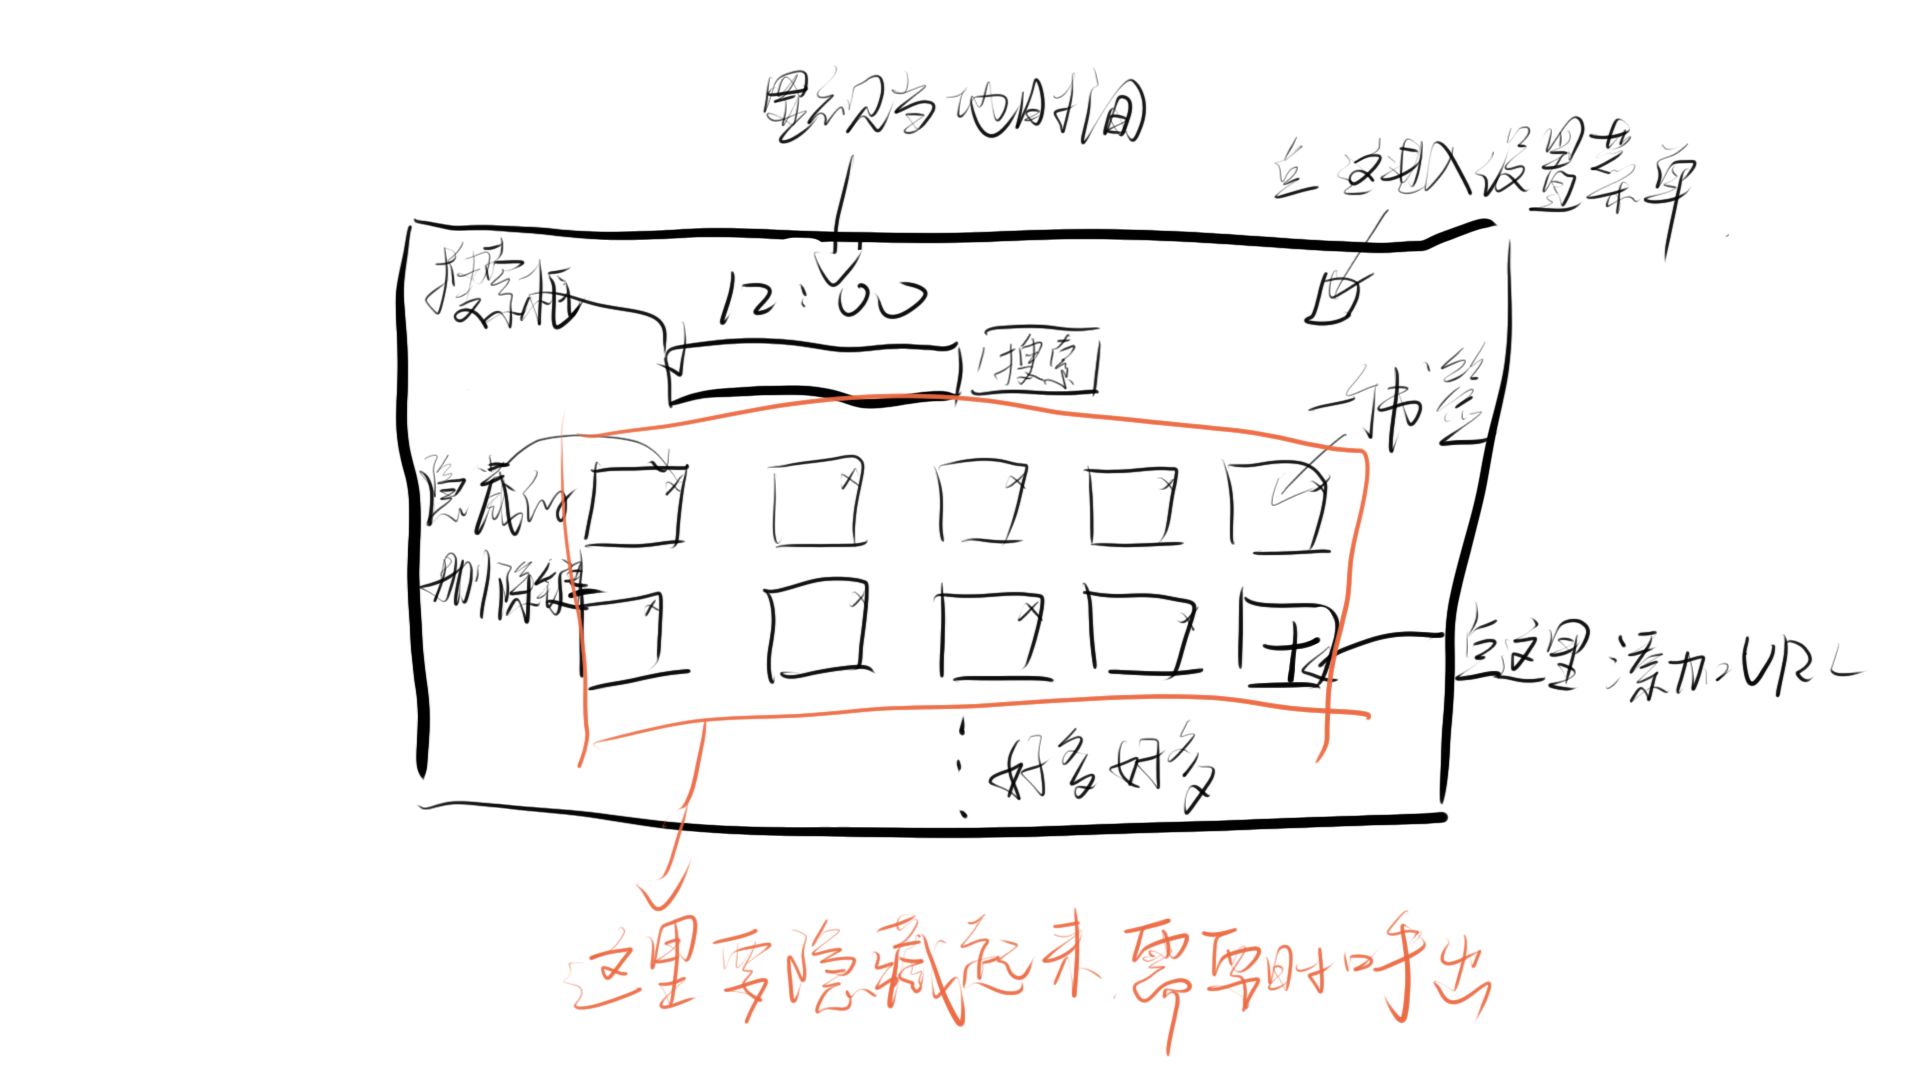 显示当地时间
点这进入设置菜单
搜索框
12:00
搜索
书签
隐藏的
删除键
点这里添加URL
好多好多
这里要隐藏起来 需要时呼出